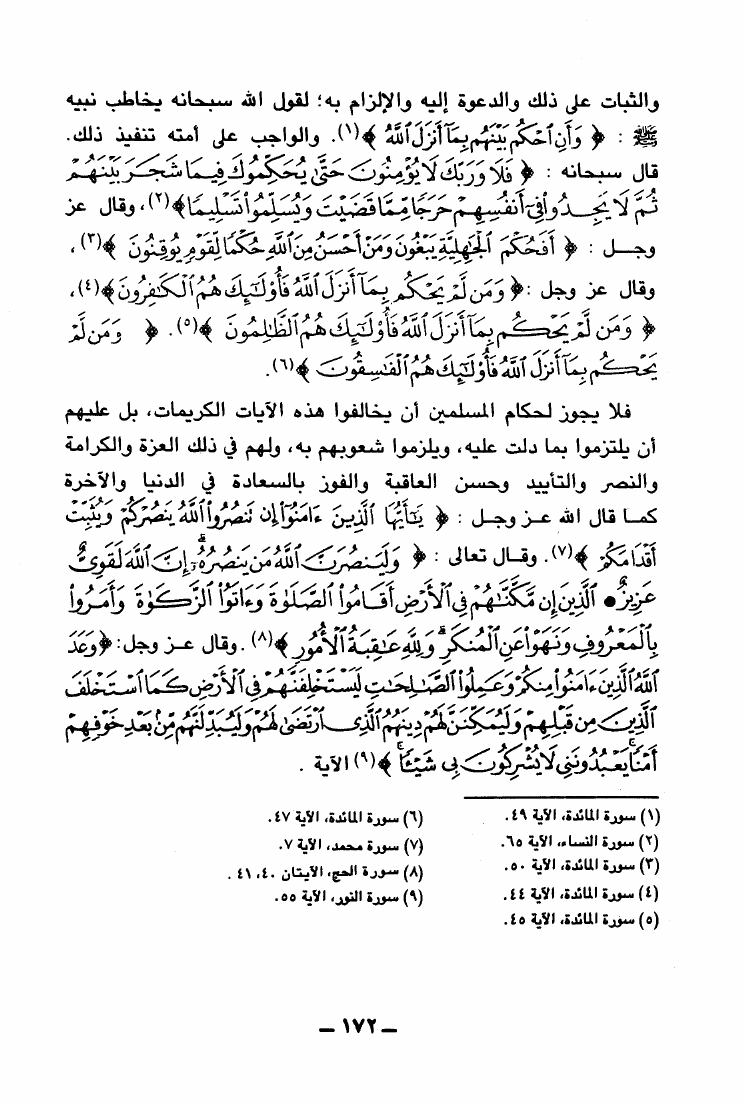 والثبات على ذلك والدعوة إليه والإلزام به؛ لقول الله سبحانه يخاطب نبيه
ﷺ : ﴿ وَأَنِ ٱحْكُم بَيْنَهُم بِمَآ أَنزَلَ ٱللَّهُ ﴾(١). والواجب على أمته تنفيذ ذلك.
قال سبحانه : ﴿ فَلَا وَرَبِّكَ لَا يُؤْمِنُونَ حَتَّىٰ يُحَكِّمُوكَ فِيمَا شَجَرَ بَيْنَهُمْ
ثُمَّ لَا يَجِدُوا۟ فِىٓ أَنفُسِهِمْ حَرَجًا مِّمَّا قَضَيْتَ وَيُسَلِّمُوا۟ تَسْلِيمًا ﴾(٢)، وقال عز
وجل : ﴿ أَفَحُكْمَ ٱلْجَٰهِلِيَّةِ يَبْغُونَ وَمَنْ أَحْسَنُ مِنَ ٱللَّهِ حُكْمًا لِّقَوْمٍ يُوقِنُونَ ﴾(٣)،
وقال عز وجل : ﴿ وَمَن لَّمْ يَحْكُم بِمَآ أَنزَلَ ٱللَّهُ فَأُو۟لَٰٓئِكَ هُمُ ٱلْكَٰفِرُونَ ﴾(٤)،
﴿ وَمَن لَّمْ يَحْكُم بِمَآ أَنزَلَ ٱللَّهُ فَأُو۟لَٰٓئِكَ هُمُ ٱلظَّٰلِمُونَ ﴾(٥). ﴿ وَمَن لَّمْ
يَحْكُم بِمَآ أَنزَلَ ٱللَّهُ فَأُو۟لَٰٓئِكَ هُمُ ٱلْفَٰسِقُونَ ﴾(٦).
فلا يجوز لحكام المسلمين أن يخالفوا هذه الآيات الكريمات، بل عليهم
أن يلتزموا بما دلت عليه، ويلزموا شعوبهم به، ولهم في ذلك العزة والكرامة
والنصر والتأييد وحسن العاقبة والفوز بالسعادة في الدنيا والآخرة
كما قال الله عز وجل : ﴿ يَٰٓأَيُّهَا ٱلَّذِينَ ءَامَنُوٓا۟ إِن تَنصُرُوا۟ ٱللَّهَ يَنصُرْكُمْ وَيُثَبِّتْ
أَقْدَامَكُمْ ﴾(٧). وقال تعالى : ﴿ وَلَيَنصُرَنَّ ٱللَّهُ مَن يَنصُرُهُۥٓ ۗ إِنَّ ٱللَّهَ لَقَوِىٌّ
عَزِيزٌ ● ٱلَّذِينَ إِن مَّكَّنَّٰهُمْ فِى ٱلْأَرْضِ أَقَامُوا۟ ٱلصَّلَوٰةَ وَءَاتَوُا۟ ٱلزَّكَوٰةَ وَأَمَرُوا۟
بِٱلْمَعْرُوفِ وَنَهَوْا۟ عَنِ ٱلْمُنكَرِ ۗ وَلِلَّهِ عَٰقِبَةُ ٱلْأُمُورِ ﴾(٨). وقال عز وجل: ﴿ وَعَدَ
ٱللَّهُ ٱلَّذِينَ ءَامَنُوا۟ مِنكُمْ وَعَمِلُوا۟ ٱلصَّٰلِحَٰتِ لَيَسْتَخْلِفَنَّهُمْ فِى ٱلْأَرْضِ كَمَا ٱسْتَخْلَفَ
ٱلَّذِينَ مِن قَبْلِهِمْ وَلَيُمَكِّنَنَّ لَهُمْ دِينَهُمُ ٱلَّذِى ٱرْتَضَىٰ لَهُمْ وَلَيُبَدِّلَنَّهُم مِّنۢ بَعْدِ خَوْفِهِمْ
أَمْنًا ۚ يَعْبُدُونَنِى لَا يُشْرِكُونَ بِى شَيْـًٔا ۚ ﴾(٩) الآية .
(١) سورة المائدة، الآية ٤٩.
(٢) سورة النساء، الآية ٦٥.
(٣) سورة المائدة، الآية ٥٠.
(٤) سورة المائدة، الآية ٤٤.
(٥) سورة المائدة، الآية ٤٥.
(٦) سورة المائدة، الآية ٤٧.
(٧) سورة محمد، الآية ٧.
(٨) سورة الحج، الآيتان ٤٠، ٤١ .
(٩) سورة النور، الآية ٥٥.
– ١٧٢ –